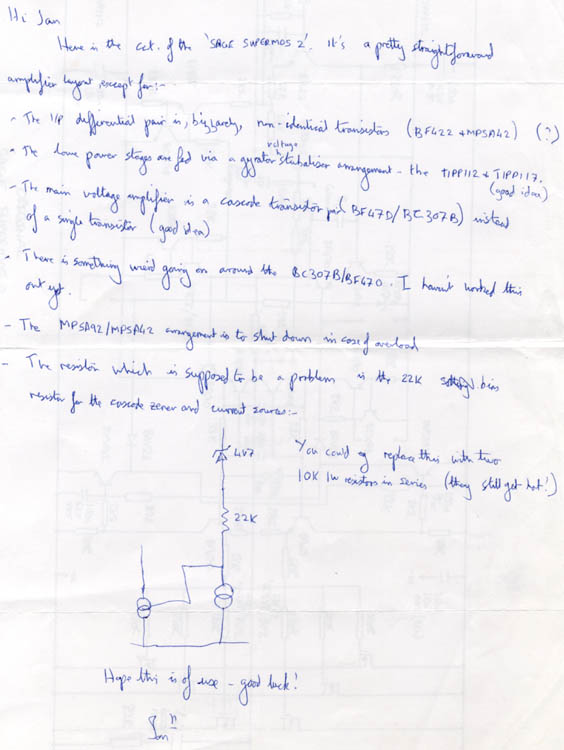 Hi Jan
Here is the cct. of the 'SAGE SUPERMOS 2'. It's a pretty straightforward
amplifier layout, except for:-
- The I/P differential pair is, bizzarely, non-identical transistors (BF422 + MPSA42) (?)
voltage
- The low power stages are fed via a gyrator stabiliser arrangement - the TIPP112 & TIPP117.
(good idea)
- The main voltage amplifier is a cascode transistor pair (BF470/BC307B) instead
of a single transistor (good idea)
- There is something weird going on around the BC307B/BF470. I haven't worked this
out yet.
- The MPSA92/MPSA42 arrangement is to shut down in case of overload
- The resistor which is supposed to be a problem is the 22K bias
resistor for the cascode zener and current sources:-
4V7
You could eg replace this with two
10K 1W resistors in series (they still get hot!)
22K
Hope this is of use - good luck!